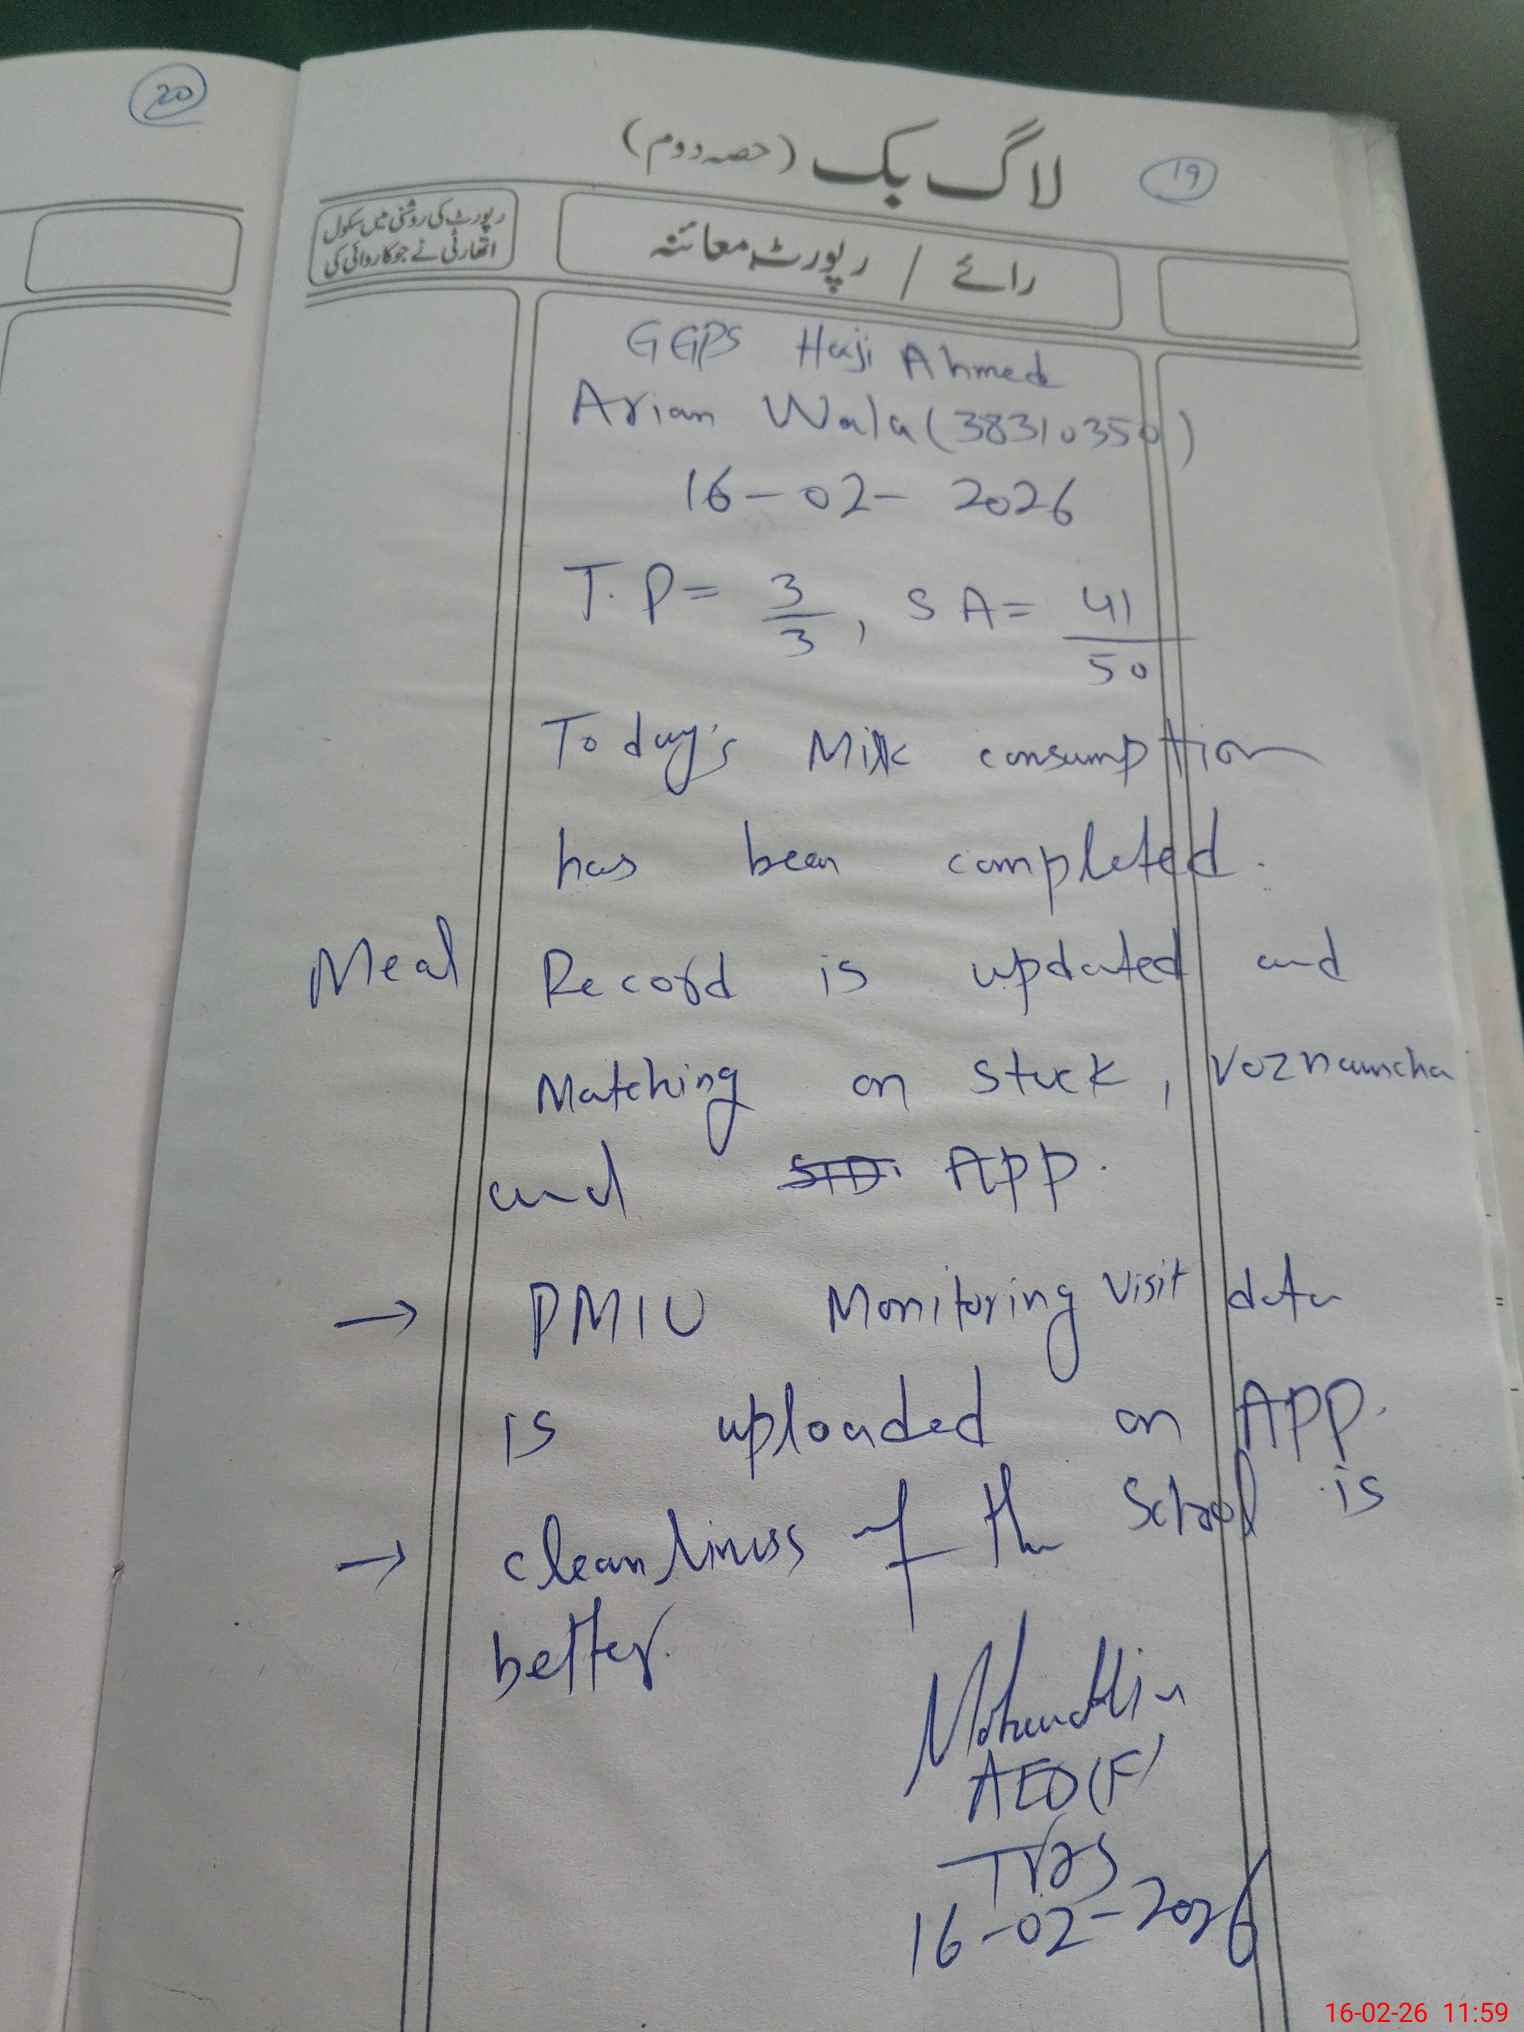 20
19
لاگ بک (حصہ دوم)
رائے / رپورٹ معائنہ
رپورٹ کی روشنی میں سکول
اتھارٹی نے جو کاروائی کی
GGPS Haji Ahmed
Arian Wala (38310350)
16-02-2026
T.P = 3/3, SA = 41/50
Today's Milk consumption
has been completed.
Meal Record is updated and
Matching on stock, roznamcha
and APP.
→ PMIU Monitoring Visit data
is uploaded on APP.
→ cleanliness of the School is
better.
AEO(F)
16-02-2026
16-02-26 11:59